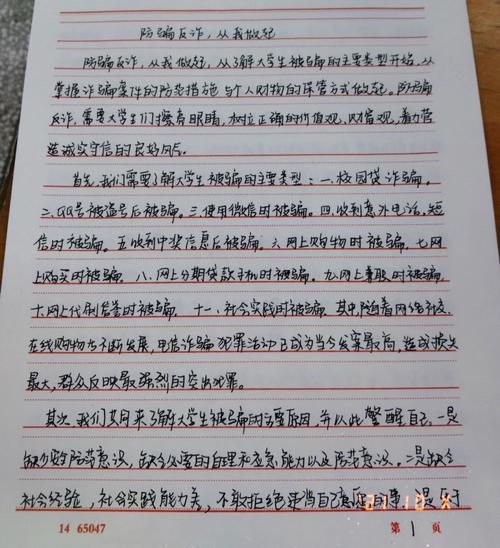 防骗反诈，从我做起
防骗反诈，从我做起，从了解大学生被骗的主要类型开始，从
掌握诈骗案件的防范措施与个人财物的保管方式做起。防骗
反诈，需要大学生们擦亮眼睛，树立正确的价值观、财富观，着力营
造诚实守信的良好风气。
首先，我们需要了解大学生被骗的主要类型：一、校园贷诈骗。
二、QQ号被盗号后被骗。三、使用微信时被骗。四、收到意外电话、短
信时被骗。五收到中奖信息后被骗。六网上购物时被骗。七网
上购买时被骗。八、网上分期贷款手机时被骗。九网上兼职时被骗。
十网上代刷信誉时被骗。十一、社会实践时被骗。其中，随着网络社交、
在线购物也不断发展，电信诈骗犯罪活动已成为当今发案最高，造成损失
最大，群众反映最强烈的突出犯罪。
其次，我们共同来了解大学生被骗的主要原因，并以此警醒自己。一是
缺少防范意识，缺今必要的自理和应急能力以及防范意识。二是缺今
社会经验，社会实践能力差，不敢拒绝违背自己意愿的事。是反于
14 65047
第1页